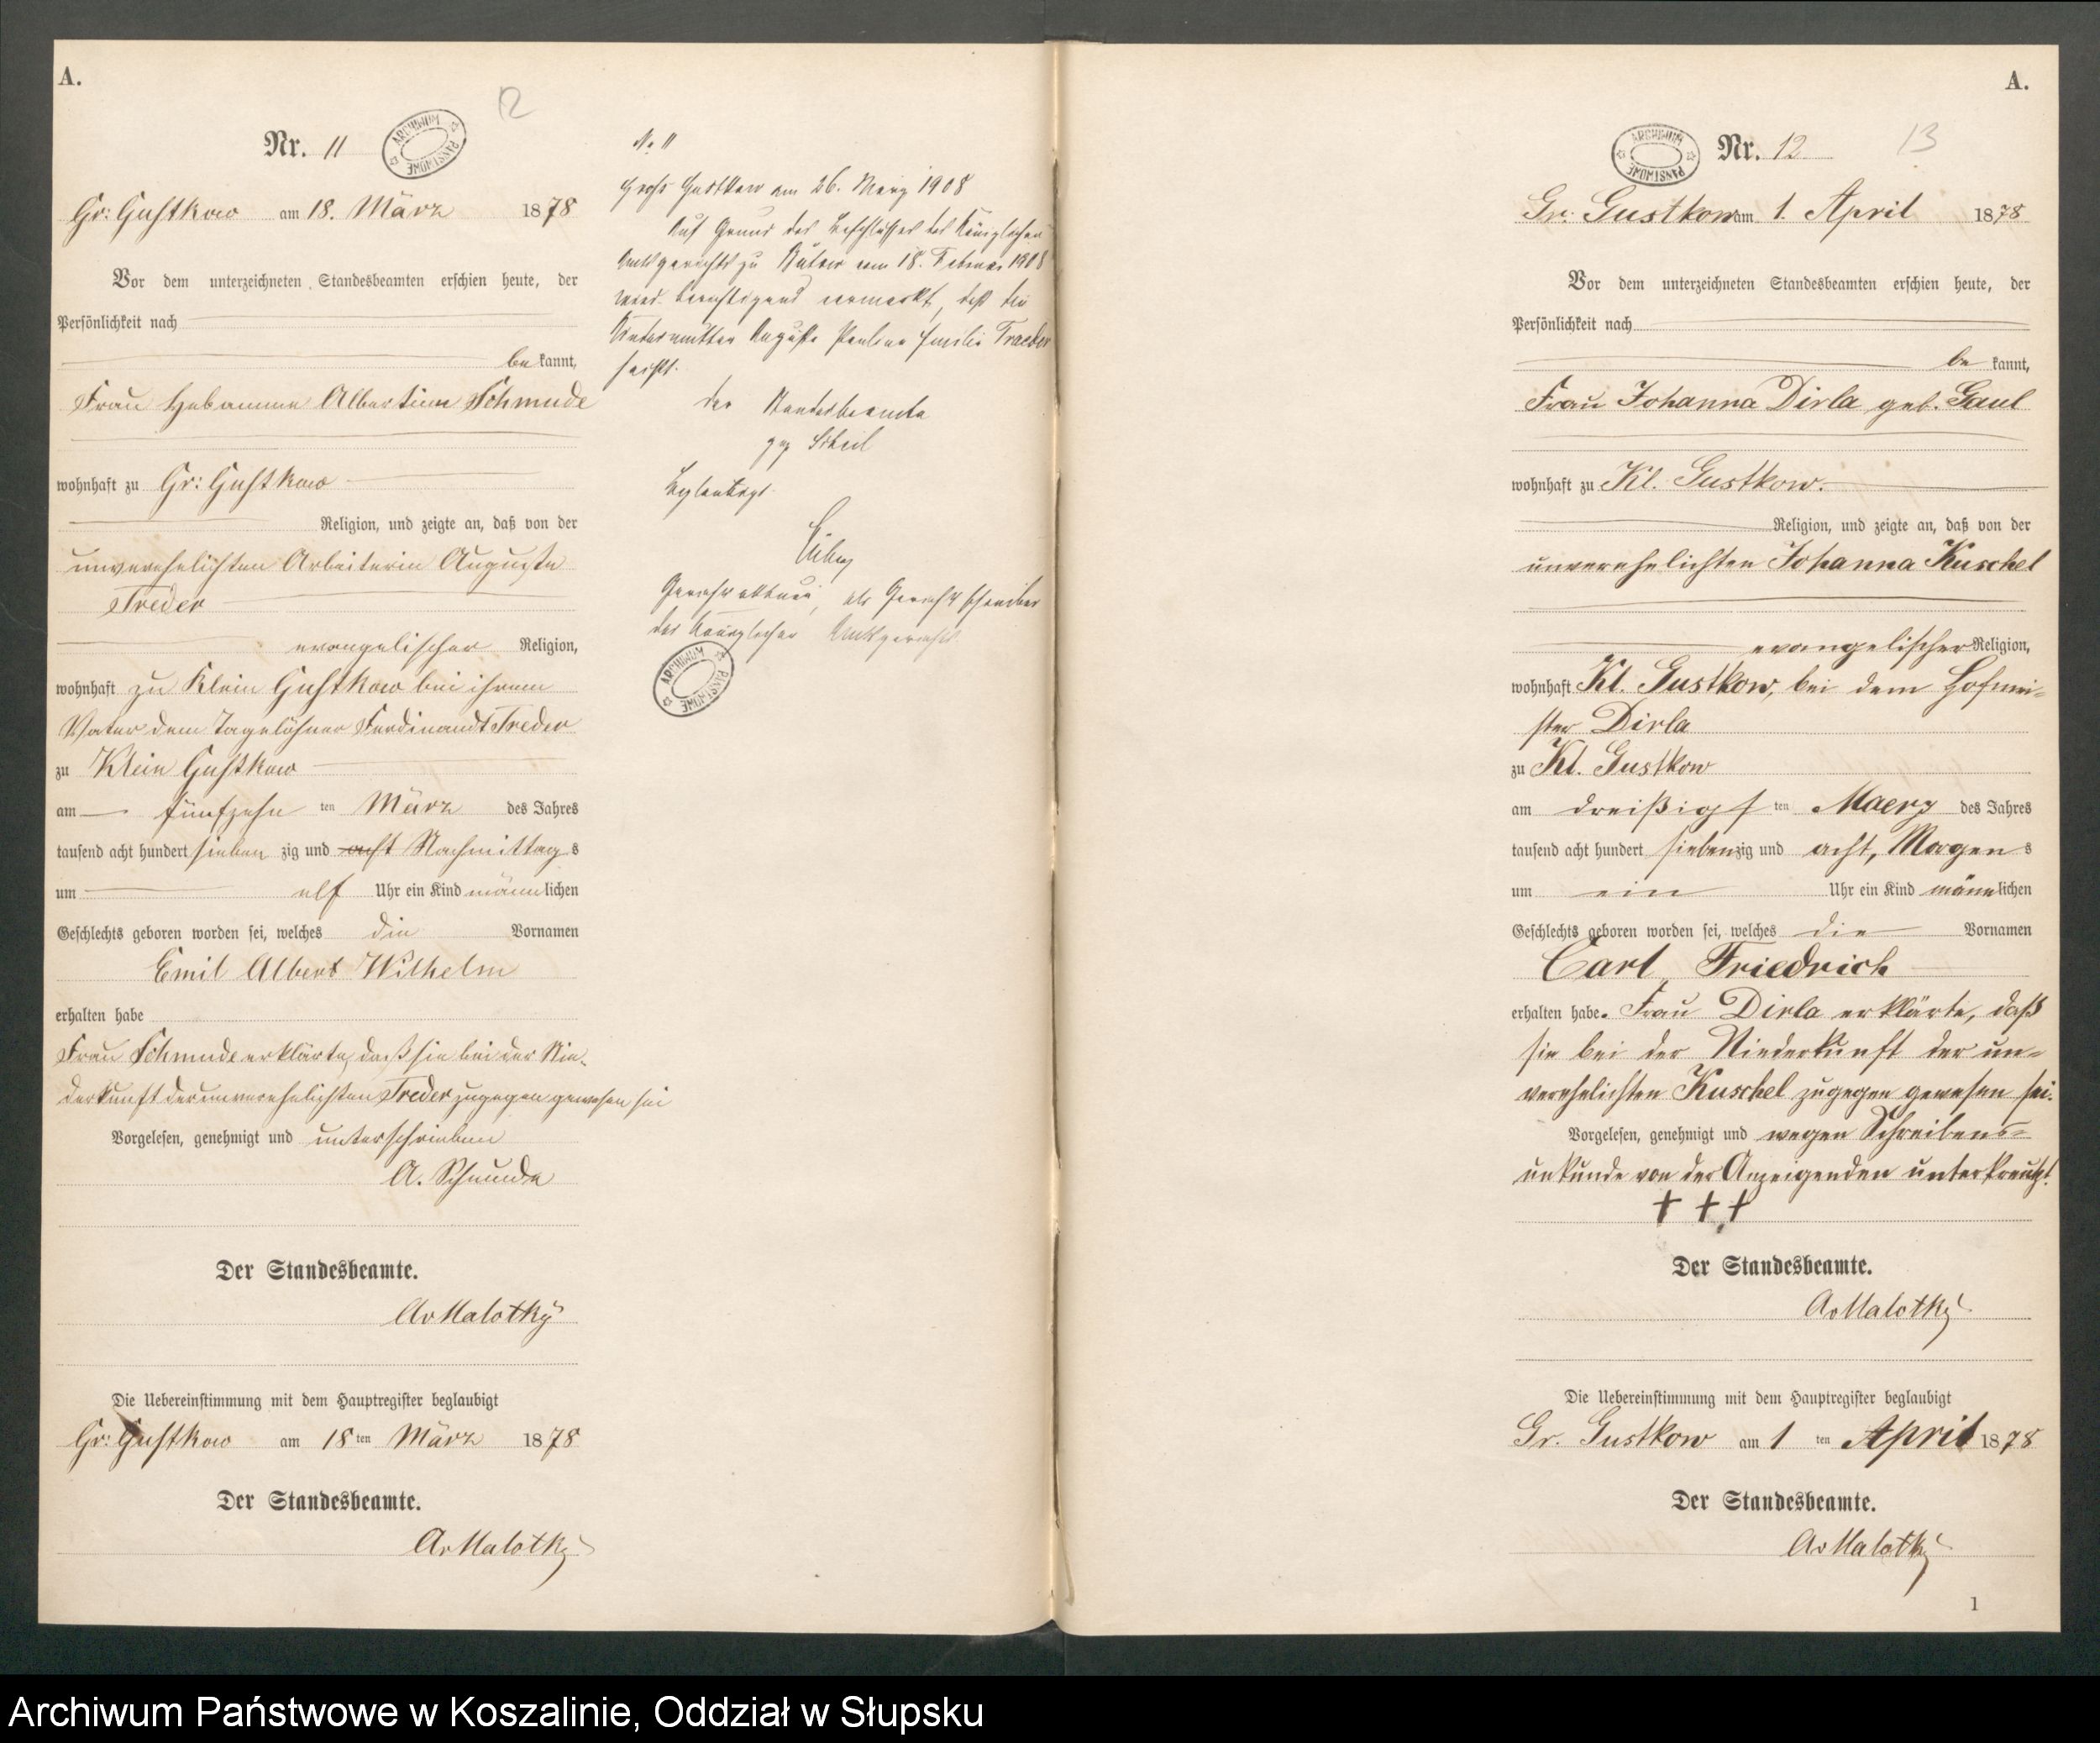 A.
12
Nr. 11
ARCHIWUM PAŃSTWOWE
Gr: Gustkow am 18. März 1878
Vor dem unterzeichneten Standesbeamten erschien heute, der
Persönlichkeit nach
be kannt,
Frau Hebamme Albertine Schmude
wohnhaft zu Gr: Gustkow
Religion, und zeigte an, daß von der
unverehelichten Arbeiterin Auguste
Treder
evangelischer Religion,
wohnhaft zu Klein Gustkow bei ihrem
Vater dem Tagelöhner Ferdinandt Treder
zu Klein Gustkow
am fünfzehn ten März des Jahres
tausend acht hundert sieben zig und acht Nachmittag s
um elf Uhr ein Kind männlichen
Geschlechts geboren worden sei, welches die Vornamen
Emil Albert Wilhelm
erhalten habe
Frau Schmude erklärte, daß sie bei der Nie-
derkunft der unverehelichten Treder zugegen gewesen sei
Vorgelesen, genehmigt und unterschrieben
A. Schmude
Der Standesbeamte.
AvMalotky
Die Uebereinstimmung mit dem Hauptregister beglaubigt
Gr: Gustkow am 18 ten März 1878
Der Standesbeamte.
AvMalotky
No 11
Groß Gustkow am 26. März 1908
Auf Grund des Beschlusses des Königlichen
Amtsgerichts zu Bütow vom 18. Februar 1908
wird berichtigend vermerkt, daß die
Kindesmutter Auguste Pauline Emilie Traeder
heißt.
Der Standesbeamte
gez
Beglaubigt.
als Gerichtsschreiber
des Königlichen Amtsgerichts.
ARCHIWUM PAŃSTWOWE
A.
13
ARCHIWUM PAŃSTWOWE
Nr. 12
Gr. Gustkow am 1. April 1878
Vor dem unterzeichneten Standesbeamten erschien heute, der
Persönlichkeit nach
be kannt,
Frau Johanna Dirla geb. Gaul
wohnhaft zu Kl. Gustkow.
Religion, und zeigte an, daß von der
unverehelichten Johanna Kuschel
evangelischer Religion,
wohnhaft Kl. Gustkow, bei dem Hofmei-
ster Dirla
zu Kl. Gustkow
am dreißigs ten Maerz des Jahres
tausend acht hundert siebenzig und acht, Morgen s
um ein Uhr ein Kind männlichen
Geschlechts geboren worden sei, welches die Vornamen
Carl Friedrich
erhalten habe. Frau Dirla erklärte, daß
sie bei der Niederkunft der un-
verehelichten Kuschel zugegen gewesen sei.
Vorgelesen, genehmigt und wegen Schreibens-
unkunde von der Anzeigenden unterkreuzt.
+ + +
Der Standesbeamte.
AvMalotky
Die Uebereinstimmung mit dem Hauptregister beglaubigt
Gr. Gustkow am 1 ten April 1878
Der Standesbeamte.
AvMalotky
1
Archiwum Państwowe w Koszalinie, Oddział w Słupsku